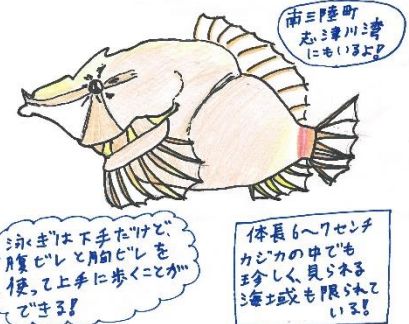 南三陸町
志津川湾
にもいるよ!
泳ぎは下手だけど
腹ビレと胸ビレを
使って上手に歩くことが
できる!
体長6〜7センチ
カジカの中でも
珍しく、見られる
海域も限られて
いる!